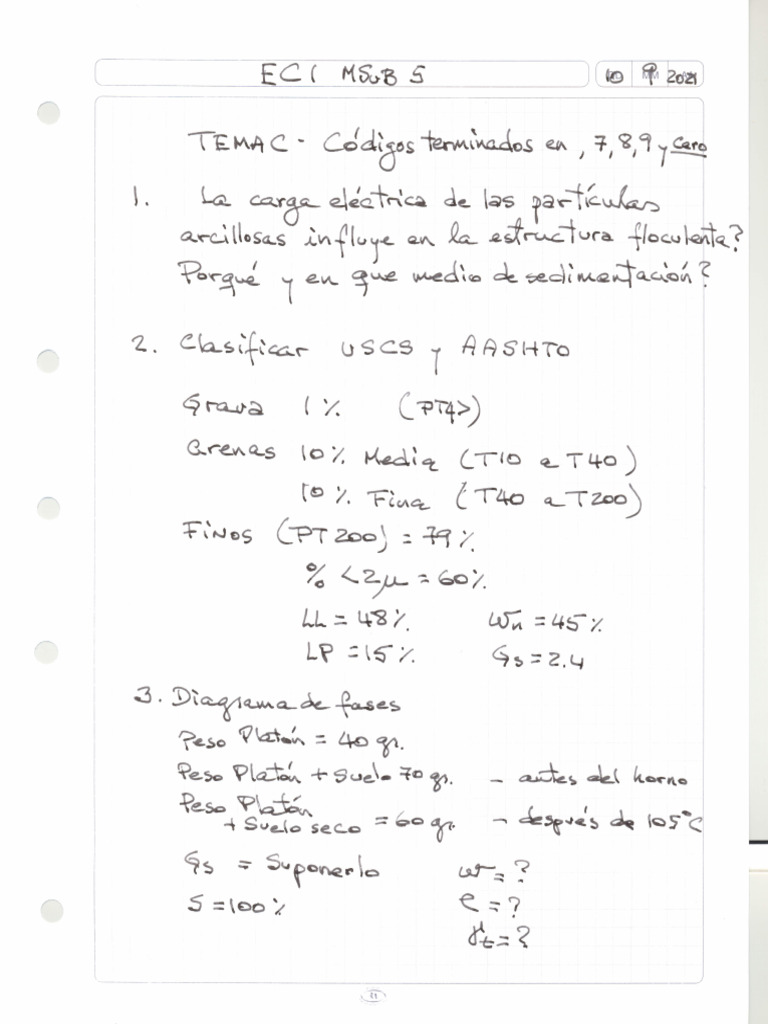 ECI MSUB 5
10 9 2021
TEMA C - Códigos terminados en, 7,8,9 y Cero
1. La carga eléctrica de las partículas
arcillosas influye en la estructura floculenta?
Porqué y en que medio de sedimentación?
2. Clasificar USCS y AASHTO
Grava 1% (PT4>)
Arenas 10% Media (T10 a T40)
10% Fina (T40 a T200)
Finos (PT200) = 79%
% <2μ = 60%
LL = 48% Wn = 45%
LP = 15% Gs = 2.4
3. Diagrama de fases
Peso Platón = 40 gr.
Peso Platón + Suelo 70 gr. - antes del horno
Peso Platón
+ Suelo seco = 60 gr. - después de 105°C
Gs = Suponerlo w = ?
S = 100% e = ?
γt = ?
11